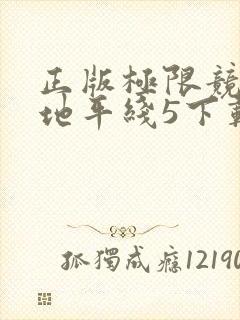 正版極限競
地平綫5下載
孤獨成癮12190